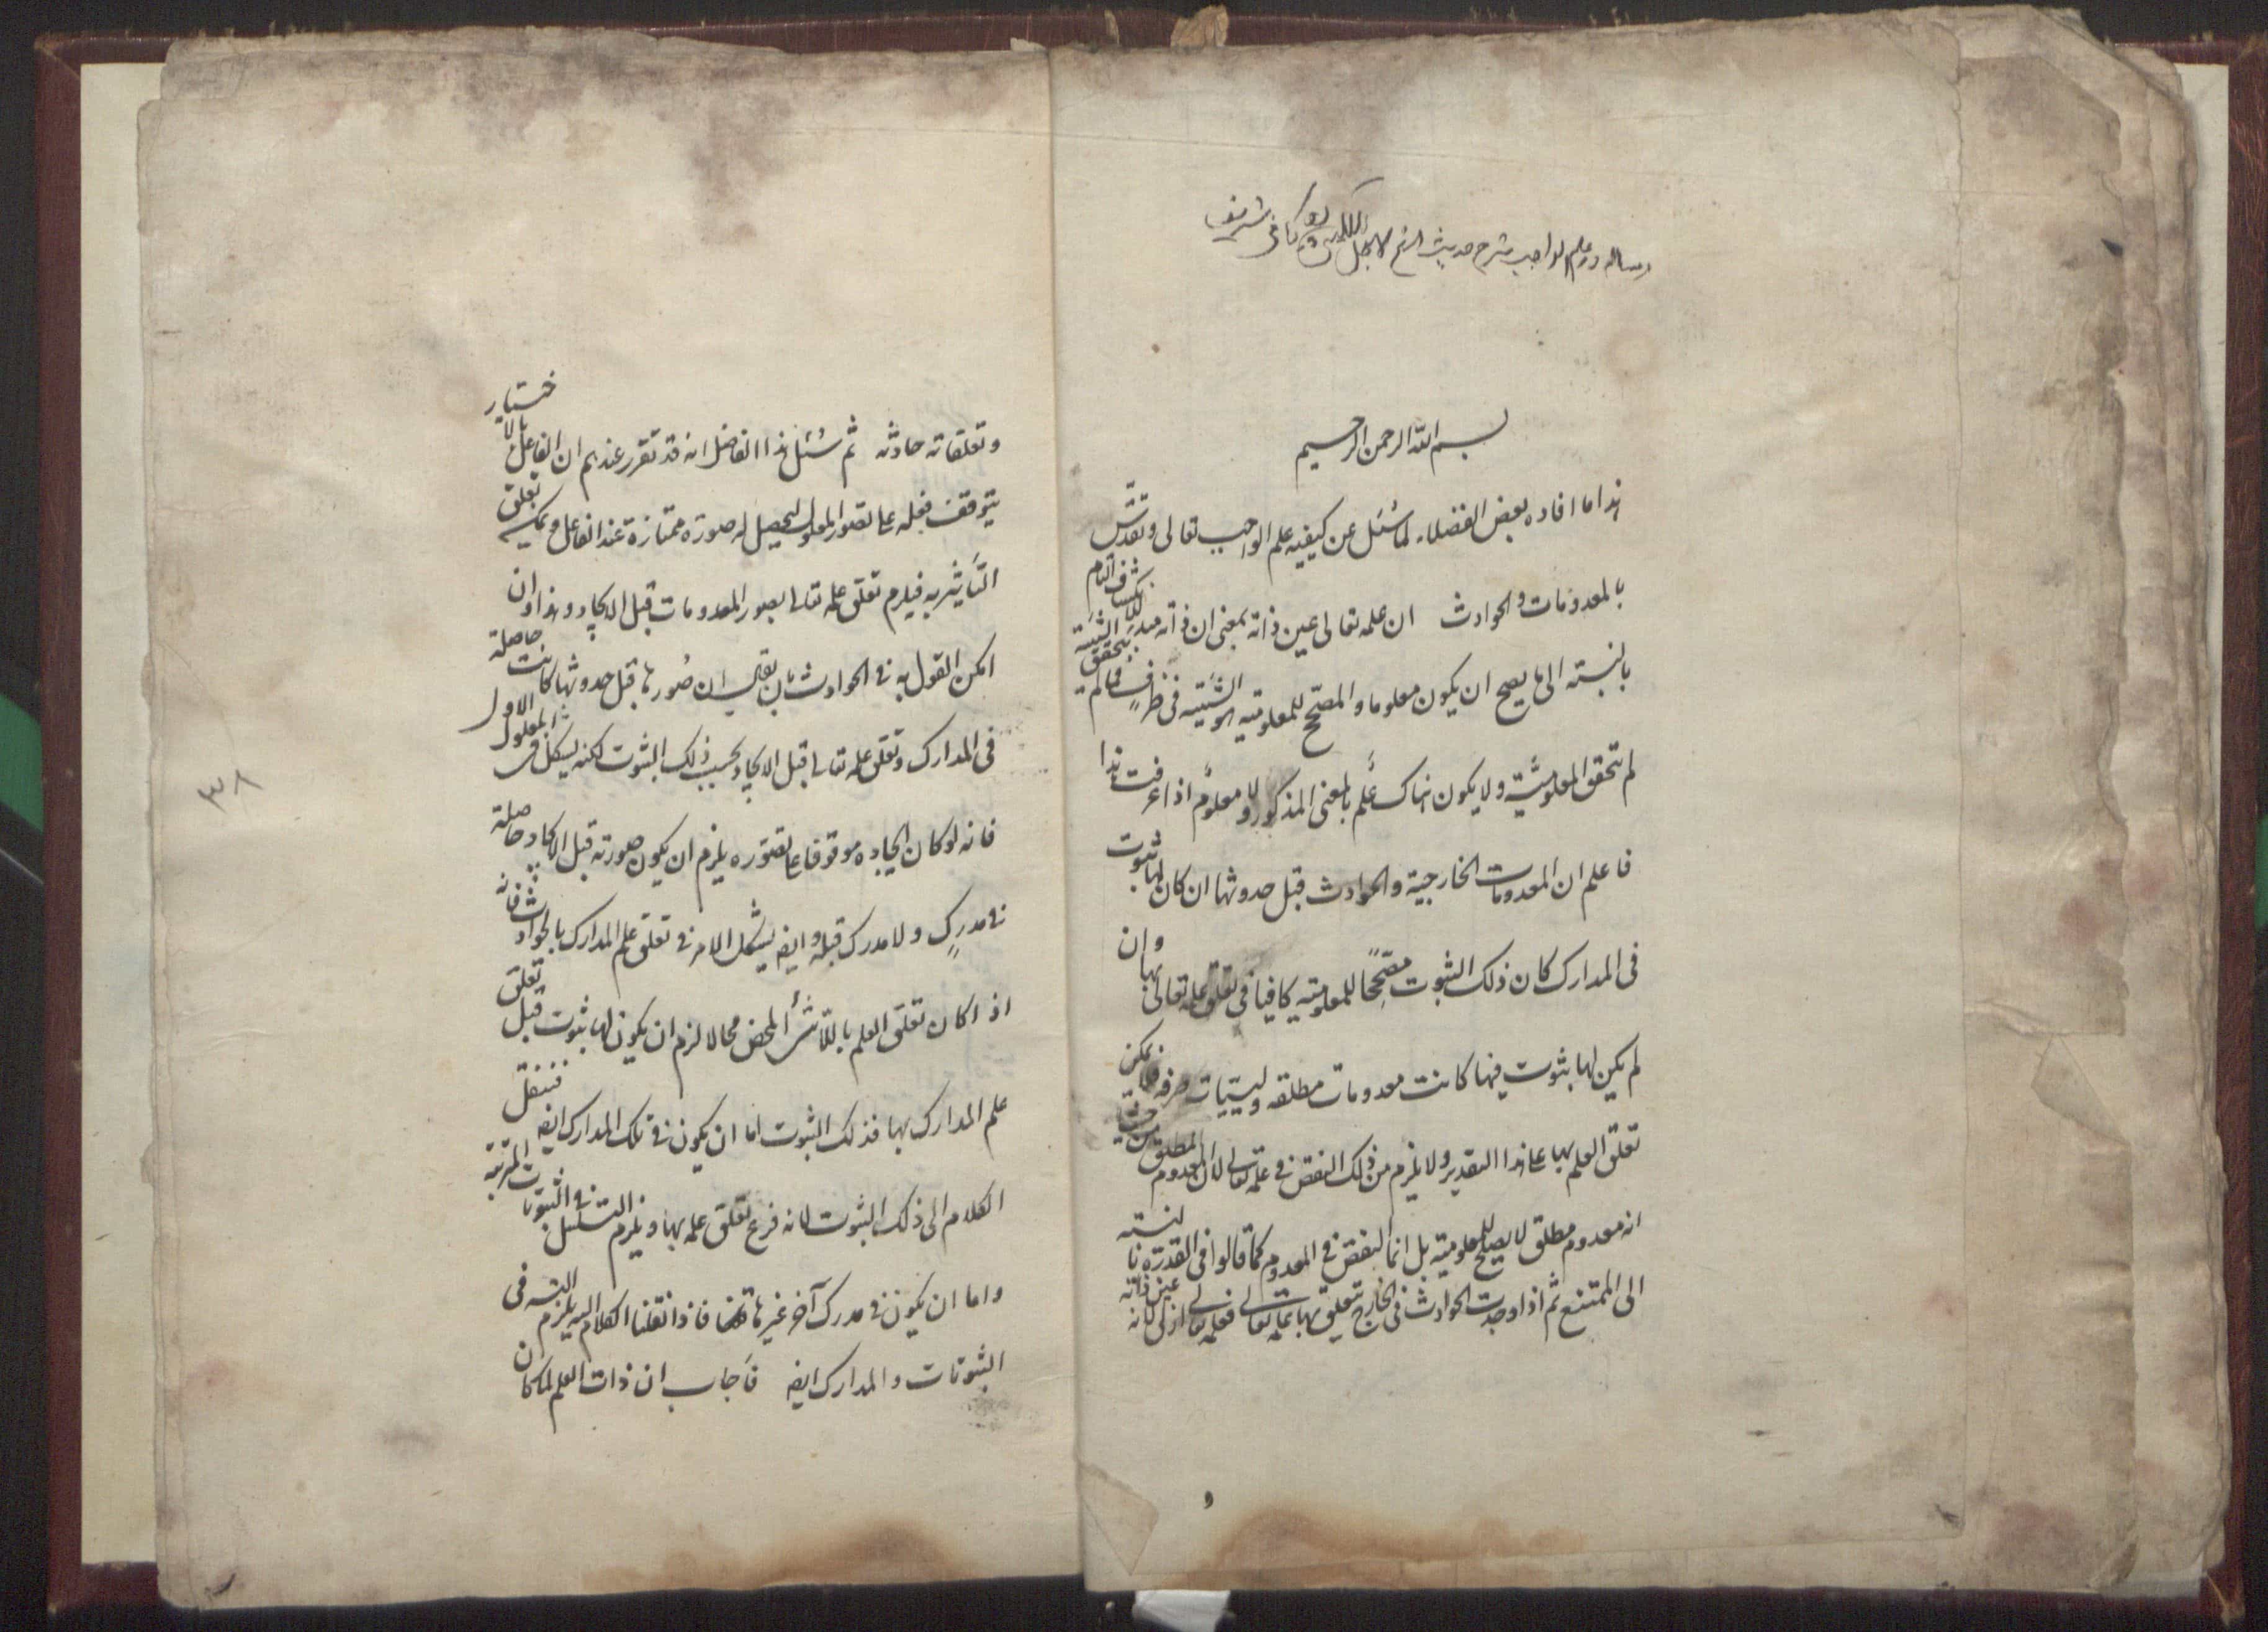 رساله در علم الواجب شرح حديث كافى شريف
بسم الله الرحمن الرحيم
هذا ما افاده بعض الفضلاء لما سُئل عن كيفيه علم الواجب تعالى وتقدّس
بالمعدومات والحوادث ان علمه تعالى عين ذاته بمعنى ان ذاته مبدء للانكشاف التام
بالنسبته الى ما يصح ان يكون معلوما والمصحّح للمعلوميته هو الشيئية فى ظرفٍ ما فما لم يتحقق الشيئية
لم يتحقق المعلوميّة ولا يكون هناك علم بالمعنى المذكور ولا معلوم اذا عرفت هذا
فاعلم ان المعدومات الخارجية والحوادث قبل حدوثها ان كان لها ثبوت
فى المدارك كان ذلك الثبوت مصحّحا للمعلوميته كافيا فى تعلق علمه تعالى بها وان
لم يكن لها ثبوت فيها كانت معدومات مطلقه وليسيات صرفه فلا يمكن
تعلق العلم بها على هذا التقدير ولا يلزم من ذلك النقص فى علمه تعالى لان المعدوم المطلق من حيث
انه معدوم مطلق لا يصلح للمعلوميته بل انما النقص فى المعدوم كما قالوا فى القدرة بالنسبته
الى الممتنع ثم اذا وجدت الحوادث فى الخارج تتعلق بها علمه تعالى فعلمه تعالى ازلى لانه عين ذاته
و
وتعلقاته حادثه ثم سُئل هذا الفاضل انه قد تقرر عندهم ان الفاعل بالاختيار
يتوقف فعله على تصور المعلول ليحصل له صورة ممتازة عند الفاعل ويمكن تعلق
التأثير به فيلزم تعلق علمه تعالى بصور المعدومات قبل الايجاد وهذا وان
امكن القول به فى الحوادث بان يقال ان صُورها قبل حدوثها كانت حاصلة
فى المدارك وتعلق علمه تعالى قبل الايجاد بحسب ذلك الثبوت لكنه يشكل فى المعلول الاول
فانه لو كان ايجاده موقوفا على تصوّره يلزم ان يكون صورته قبل الايجاد حاصلة
فى مدركٍ ولا مدرك قبله وايضه يشكل الامر فى تعلق علم المدارك بالحوادث فانه
اذا كان تعلق العلم باللاشئ المحض محالا لزم ان يكون لها ثبوت قبل تعلق
علم المدارك بها فذلك الثبوت اما ان يكون فى تلك المدارك ايضه فننقل
الكلام الى ذلك الثبوت لانه فرع تعلق علمه بها ويلزم التسلسل فى الثبوتات المترتبة
واما ان يكون فى مدرك آخر غيرها فاذا نقلنا الكلام اليه يلزم التسه فى
الثبوتات والمدارك ايضه فأجاب ان ذات العلم لما كان
٣٨